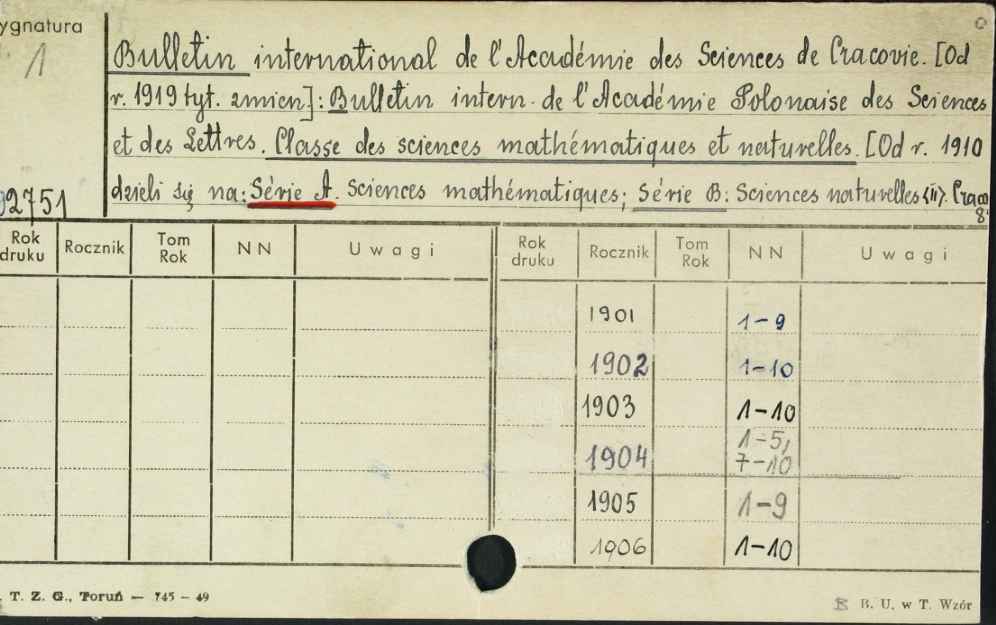 ygnatura
1
Bulletin international de l'Académie des Sciences de Cracovie. [Od
r. 1919 tyt. zmien]: Bulletin intern. de l'Académie Polonaise des Sciences
et des Lettres. Classe des sciences mathématiques et naturelles. [Od r. 1910
dzieli się na: Série A. Sciences mathématiques; Série B: Sciences naturelles (ii). Craco
02751
8°
Rok druku Rocznik Tom Rok NN Uwagi Rok druku Rocznik Tom Rok NN Uwagi
1901 1-9
1902 1-10
1903 1-10
1904 1-5, 7-10
1905 1-9
1906 1-10
. T. Z. G., Toruń — 745 - 49
B. U. w T. Wzór